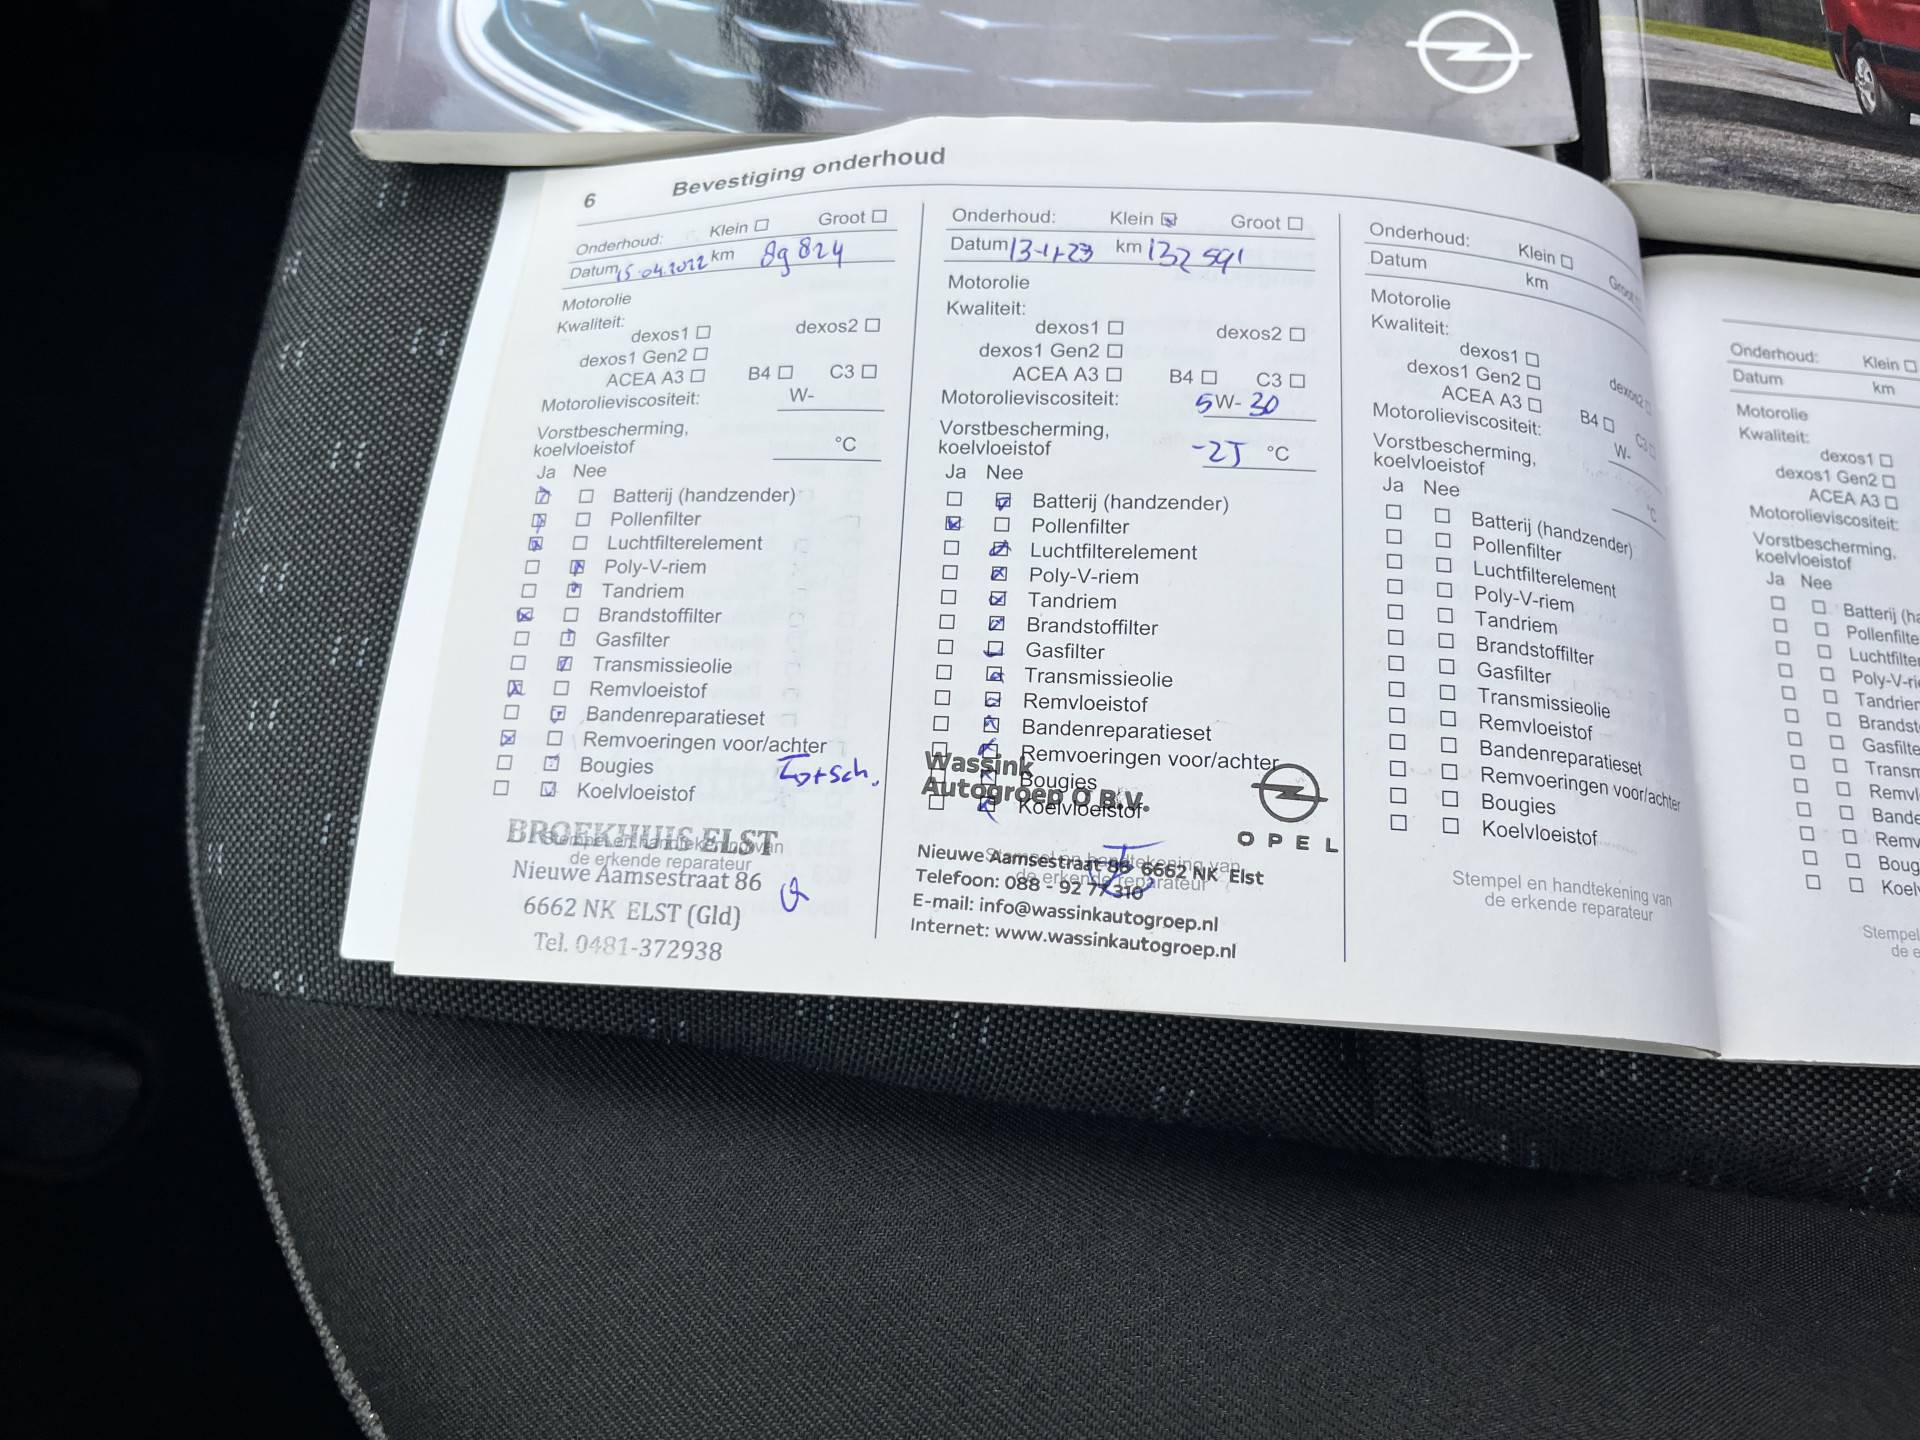 6 Bevestiging onderhoud
Onderhoud: Klein Groot
Datum 15.04.2022 km 89 824
Motorolie
Kwaliteit:
dexos1 dexos2
dexos1 Gen2
ACEA A3 B4 C3
Motorolieviscositeit: W-
Vorstbescherming,
koelvloeistof °C
Ja Nee
Batterij (handzender)
Pollenfilter
Luchtfilterelement
Poly-V-riem
Tandriem
Brandstoffilter
Gasfilter
Transmissieolie
Remvloeistof
Bandenreparatieset
Remvoeringen voor/achter
Bougies
Koelvloeistof
BROEKHUIS ELST
Stempel en handtekening van
de erkende reparateur
Nieuwe Aamsestraat 86
6662 NK ELST (Gld)
Tel. 0481-372938
Onderhoud: Klein Groot
Datum 13-1-23 km 132 591
Motorolie
Kwaliteit:
dexos1 dexos2
dexos1 Gen2
ACEA A3 B4 C3
Motorolieviscositeit: 5W-30
Vorstbescherming,
koelvloeistof -25 °C
Ja Nee
Batterij (handzender)
Pollenfilter
Luchtfilterelement
Poly-V-riem
Tandriem
Brandstoffilter
Gasfilter
Transmissieolie
Remvloeistof
Bandenreparatieset
Remvoeringen voor/achter
Wassink
Bougies
Autogroep O B.V.
Koelvloeistof
OPEL
Stempel en handtekening van
de erkende reparateur
Nieuwe Aamsestraat 86 6662 NK Elst
Telefoon: 088 - 92 77 310
E-mail: info@wassinkautogroep.nl
Internet: www.wassinkautogroep.nl
Onderhoud: Klein Groot
Datum km
Motorolie
Kwaliteit:
dexos1 dexos2
dexos1 Gen2
ACEA A3 B4 C3
Motorolieviscositeit: W-
Vorstbescherming,
koelvloeistof °C
Ja Nee
Batterij (handzender)
Pollenfilter
Luchtfilterelement
Poly-V-riem
Tandriem
Brandstoffilter
Gasfilter
Transmissieolie
Remvloeistof
Bandenreparatieset
Remvoeringen voor/achter
Bougies
Koelvloeistof
Stempel en handtekening van
de erkende reparateur
Onderhoud: Klein
Datum km
Motorolie
Kwaliteit:
dexos1
dexos1 Gen2
ACEA A3
Motorolieviscositeit:
Vorstbescherming,
koelvloeistof
Ja Nee
Batterij (ha
Pollenfilte
Luchtfilter
Poly-V-ri
Tandrien
Brandst
Gasfilte
Transm
Remvl
Bande
Remv
Boug
Koel
Stempel
de e